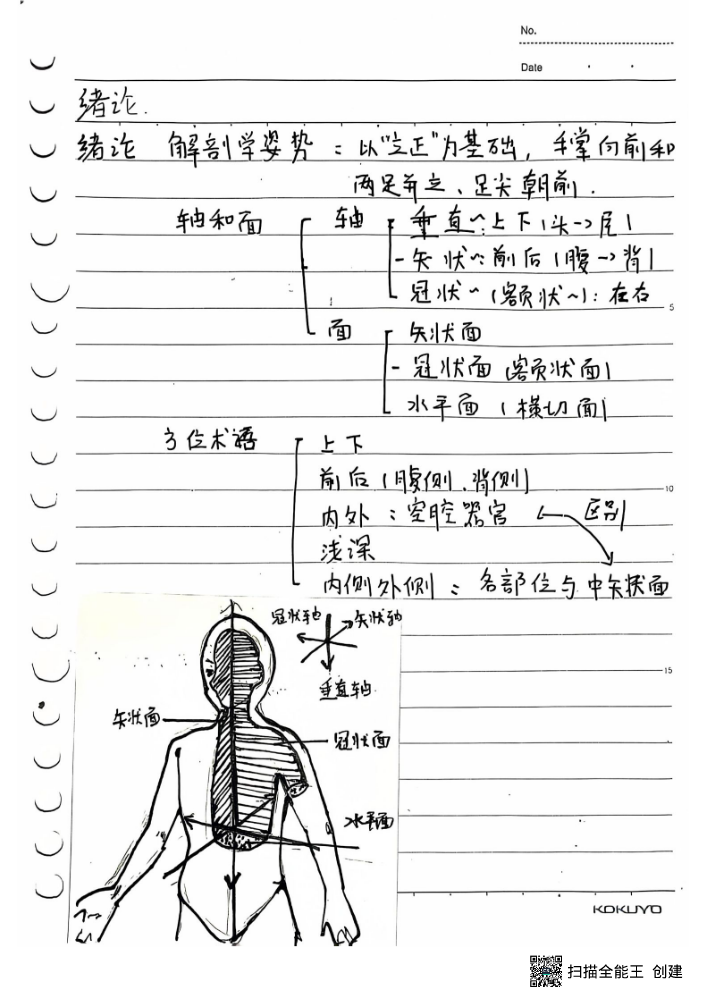 No.
Date
绪论.
绪论 解剖学姿势：以“立正”为基础，手掌向前和
两足并立、足尖朝前.
轴和面 轴 垂直~：上下（头→尾）
- 矢状~：前后（腹→背）
冠状~（额状~）：左右
5
面 矢状面
- 冠状面（额状面）
水平面（横切面）
方位术语 上下
前后（腹侧、背侧）
10
内外：空腔器官 区别
浅深
内侧外侧：各部位与中矢状面
冠状轴 矢状轴
15
垂直轴
矢状面
冠状面
水平面
KOKUYO
扫描全能王 创建